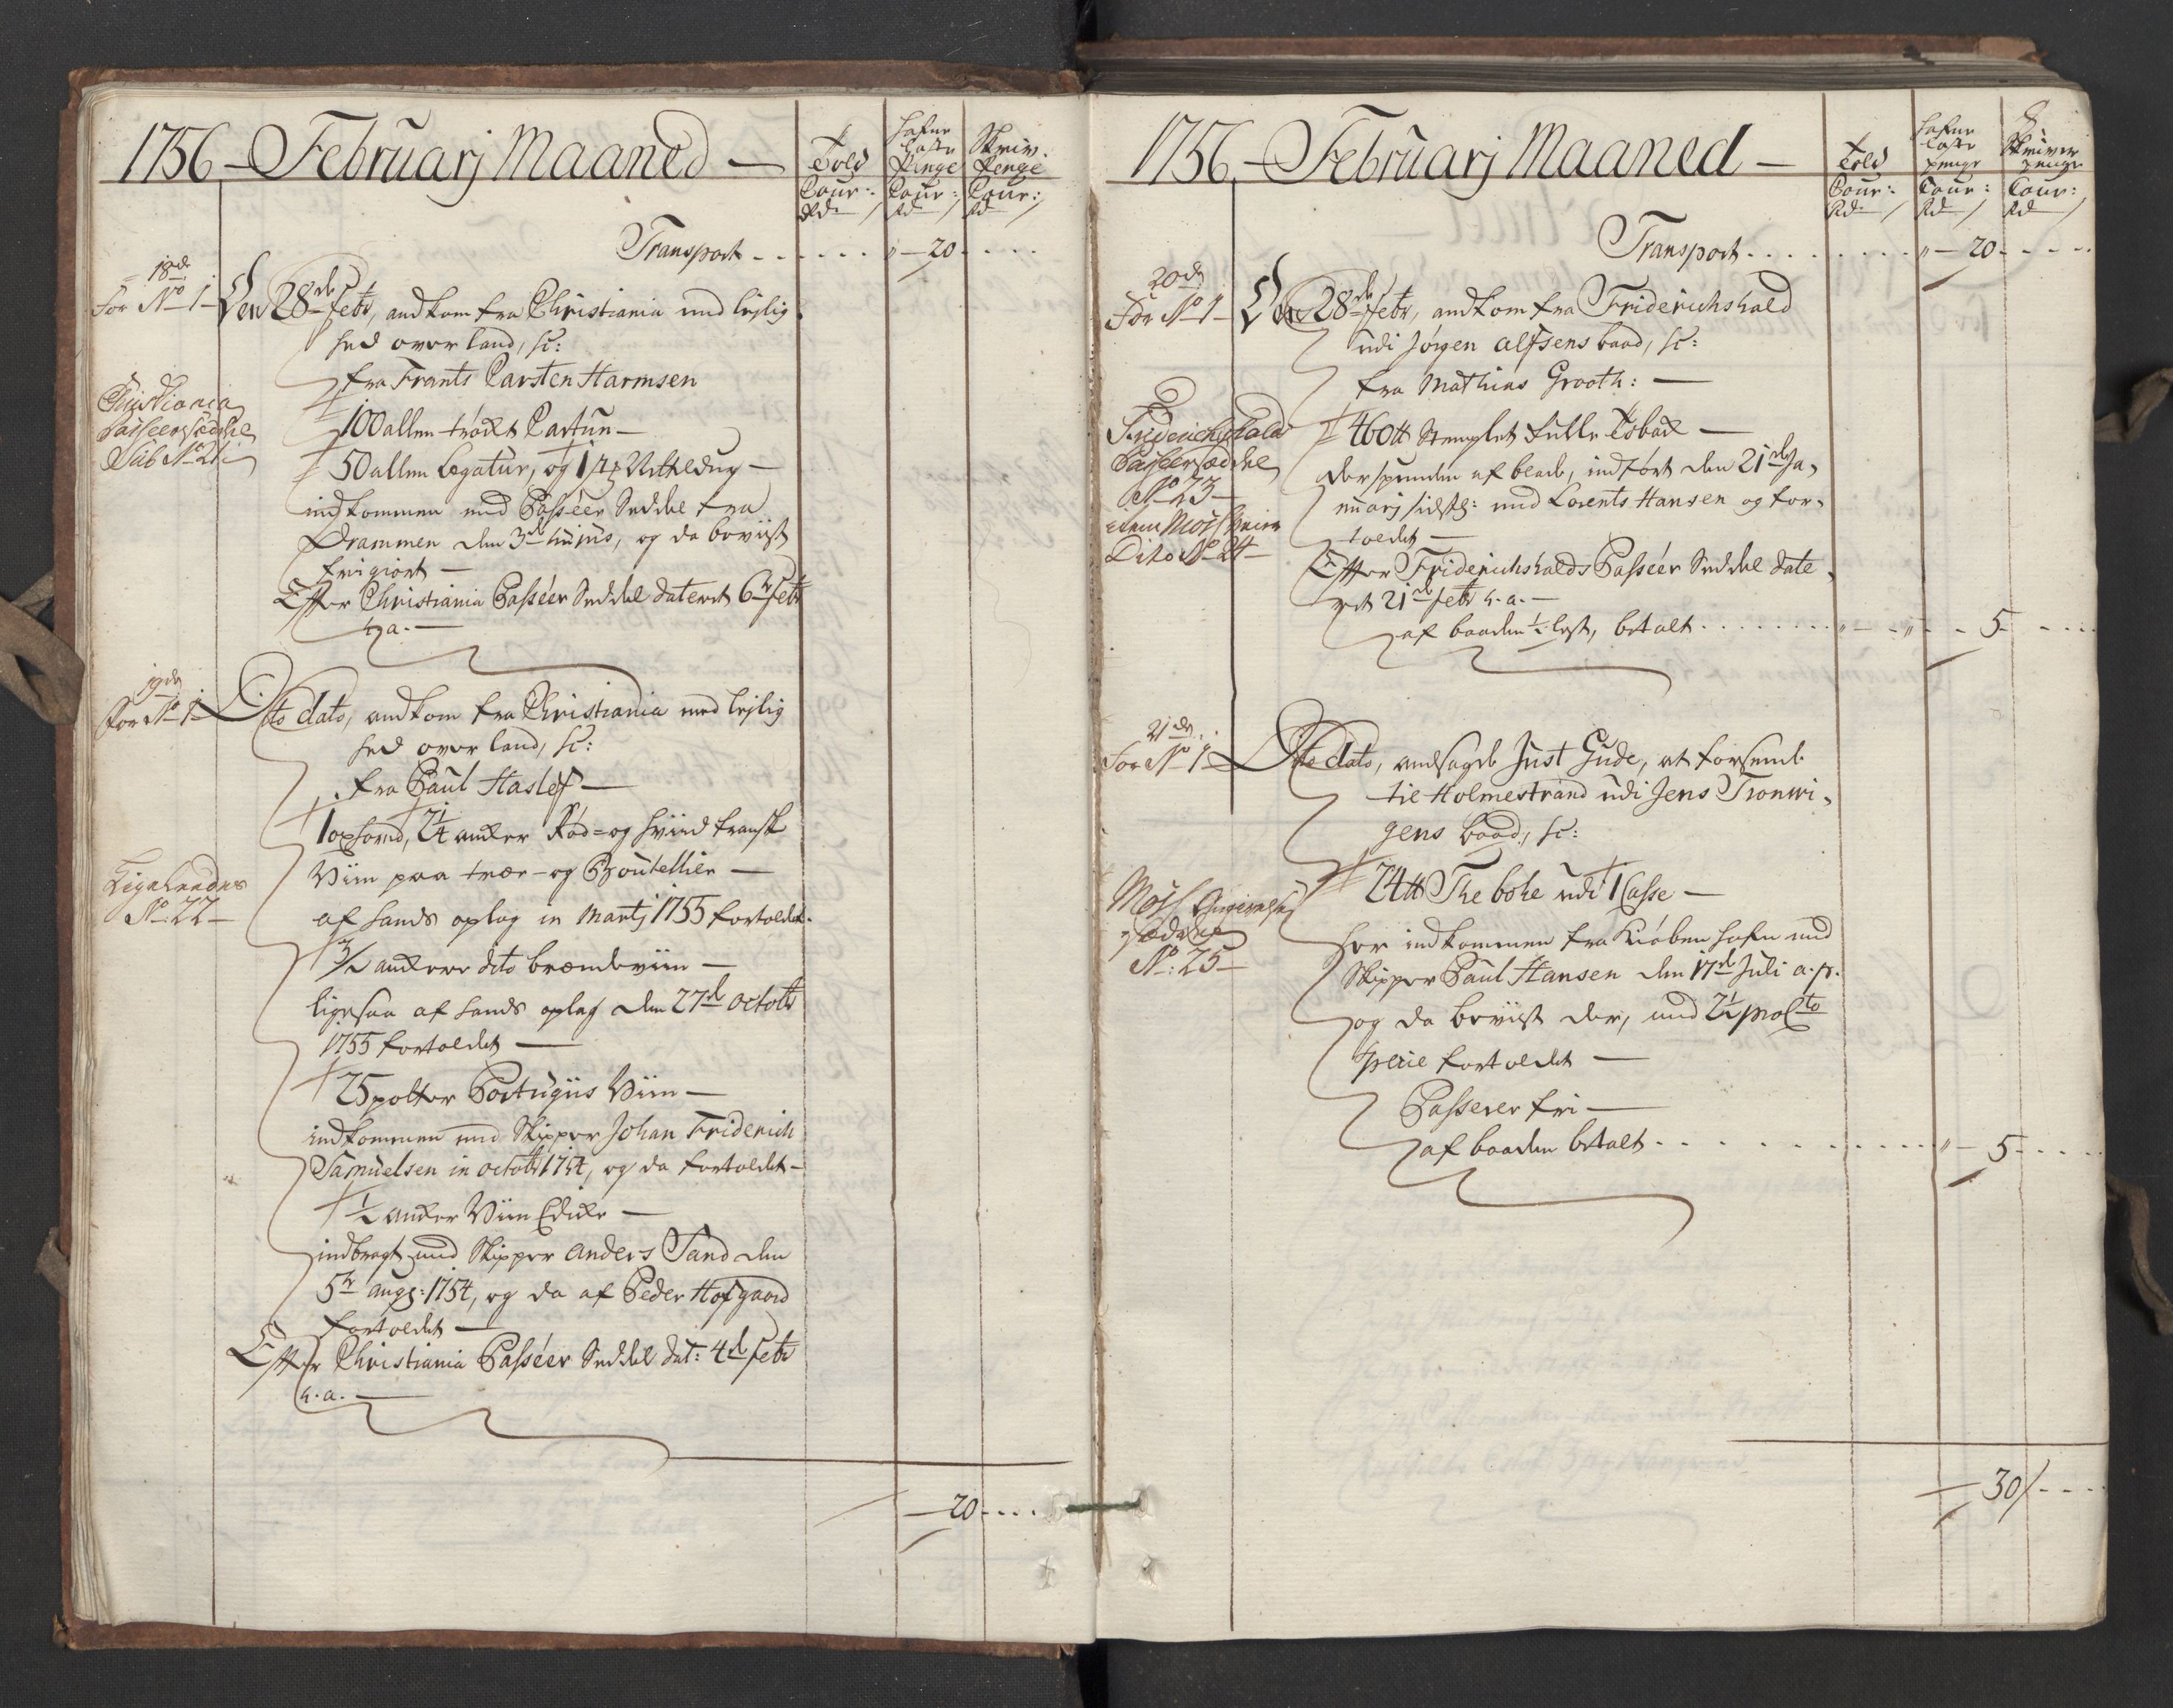 1756 – Februarj Maaned –
Told
Cour:
Rd
hafne
Laste
Penge
Cour:
Rd
Skriv.
Penge
Cour:
Rd
Transport - - - - - - " – 20 - - - -
18de
for No 1 –
Den 28de Febr, andkom fra Christiania med leylig
hed over land, sc:
fra Frants Carsten Harmsen
Christiania
Passeerseddel
Sub No 21
100 allen trÿckt Cartun –
50 allen Legatur, og 1
indkommen med Passeer Seddel fra
Drammen den 3de hujus, og da beviist
frigiort –
Efter Christiania Passéer Seddel dateret 6te Febr
h. a. –
19de
for No 1 –
Dito dato, andkom fra Christiania med leylig
hed over land, sc:
fra Paul Haslef –
1 oxhoved, 2 1/4 ancker Rød- og hviid fransk
Viin paa træer – og Boutellier –
Ligeledes
No: 22 –
af hands oplag in Martj 1755 fortoldet.
3/2 anckere dito brændeviin –
ligesaa af hands oplag den 27de octobr
1755 fortoldet –
25 potter Portugiis Viin –
indkommen med Skipper Johan Friderich
Samuelsen in octobr 1754, og da fortoldet –
1/2 ancker Viin Edicke –
indbragt med Skipper Anders Sand den
5te augs: 1754, og da af Peder Hofgaard
fortoldet –
Efter Christiania Passéer Seddel dat: 4de Febr
h. a. –
– 20 - - - -
1756 – Februarj Maaned –
Told
Cour:
Rd
hafne
Laste
penge
Cour:
Rd
Skriver
penge
Cour:
Rd
Transport - - - - - - - - " – 20 - - - - -
20de
For No 1 –
Den 28de Febr, andkom fra Friderichshald
udi Jørgen Alfsens baad, sc:
fra Mathias Grooth: –
Friderichshald
Passeerseddel
No 23 –
460 ℔ Stemplet fulle Tobak –
derspunden af blade, indført den 21de Ja-
nuarj sidstl: med Lorents Hansen og for-
toldet –
Dito No 24 –
Efter Friderichshalds Passéer Seddel date-
ret 21de Febr h. a. –
af baaden 1/2 læst, betalt - - - - - - - " – - " - - 5 - - - - -
21de
for No 1 –
Dito dato, andsagde Just Gude, at forsende
til Holmestrand udi Jens Tronvi-
gens baad, sc:
Moss Angivelses
seddel
No: 25 –
24 ℔ The bohe udi 1 Casse –
her indkommen fra Kiøbenhafn med
Skipper Paul Hansen den 17de Juli a. p.
og da beviist der, med 2 1/2 prcto
specie fortoldet –
Passerer fri –
af baaden betalt - - - - - - - - - - " – 5 - - - - -
– 30 - - - -